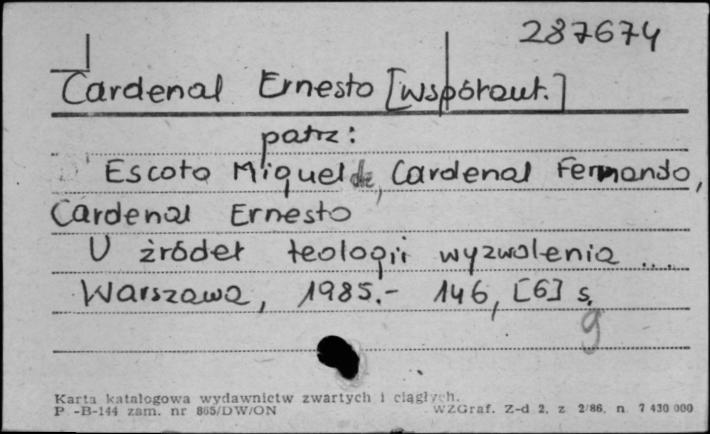 287674
Cardenal Ernesto [współaut.]
patrz:
Escoto Miquel de, Cardenal Fernando,
Cardenal Ernesto
U źródeł teologii wyzwolenia ...
Warszawa, 1985.- 146, [6] s.
g
Karta katalogowa wydawnictw zwartych i ciągłych.
P -B-144 zam. nr 865/DW/ON WZGraf. Z-d 2. z 2/86. n. 7 430 000